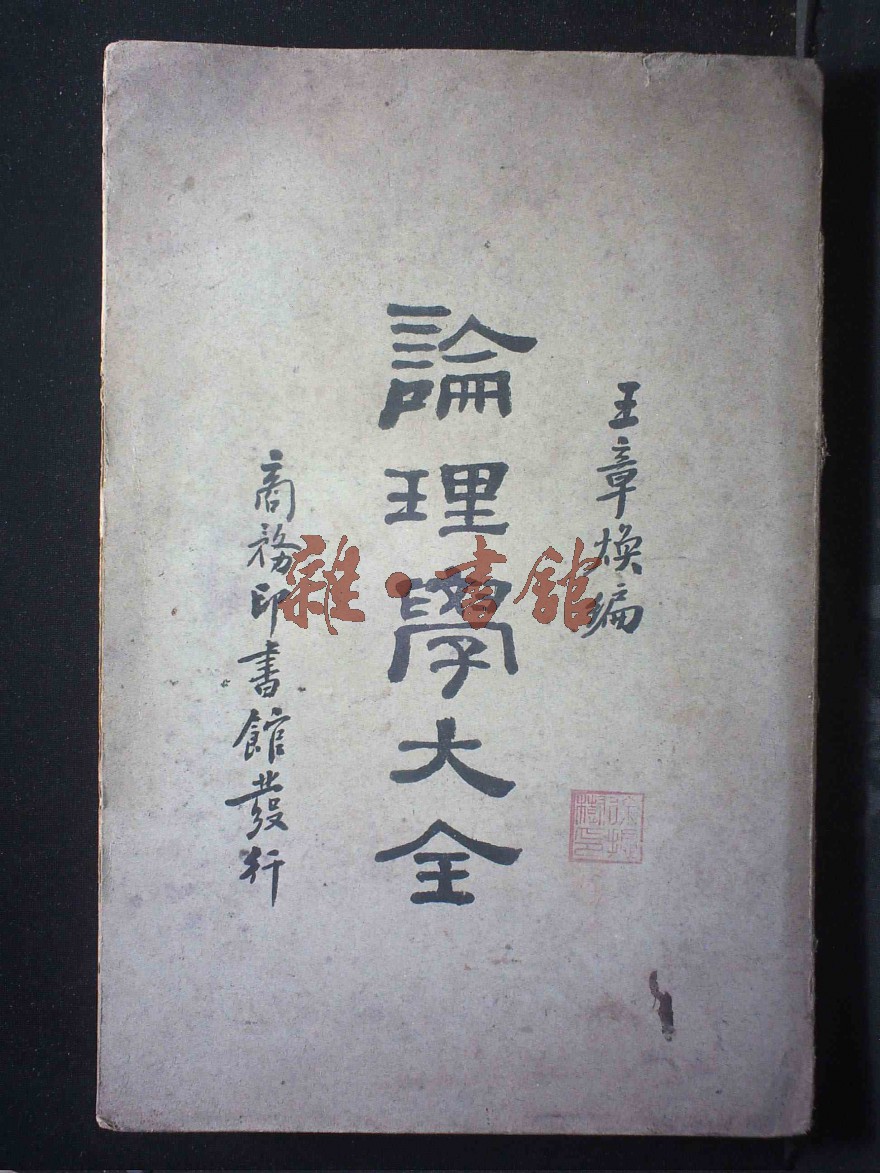 王章煥編
論理學大全
商務印書館發行
雜·書館